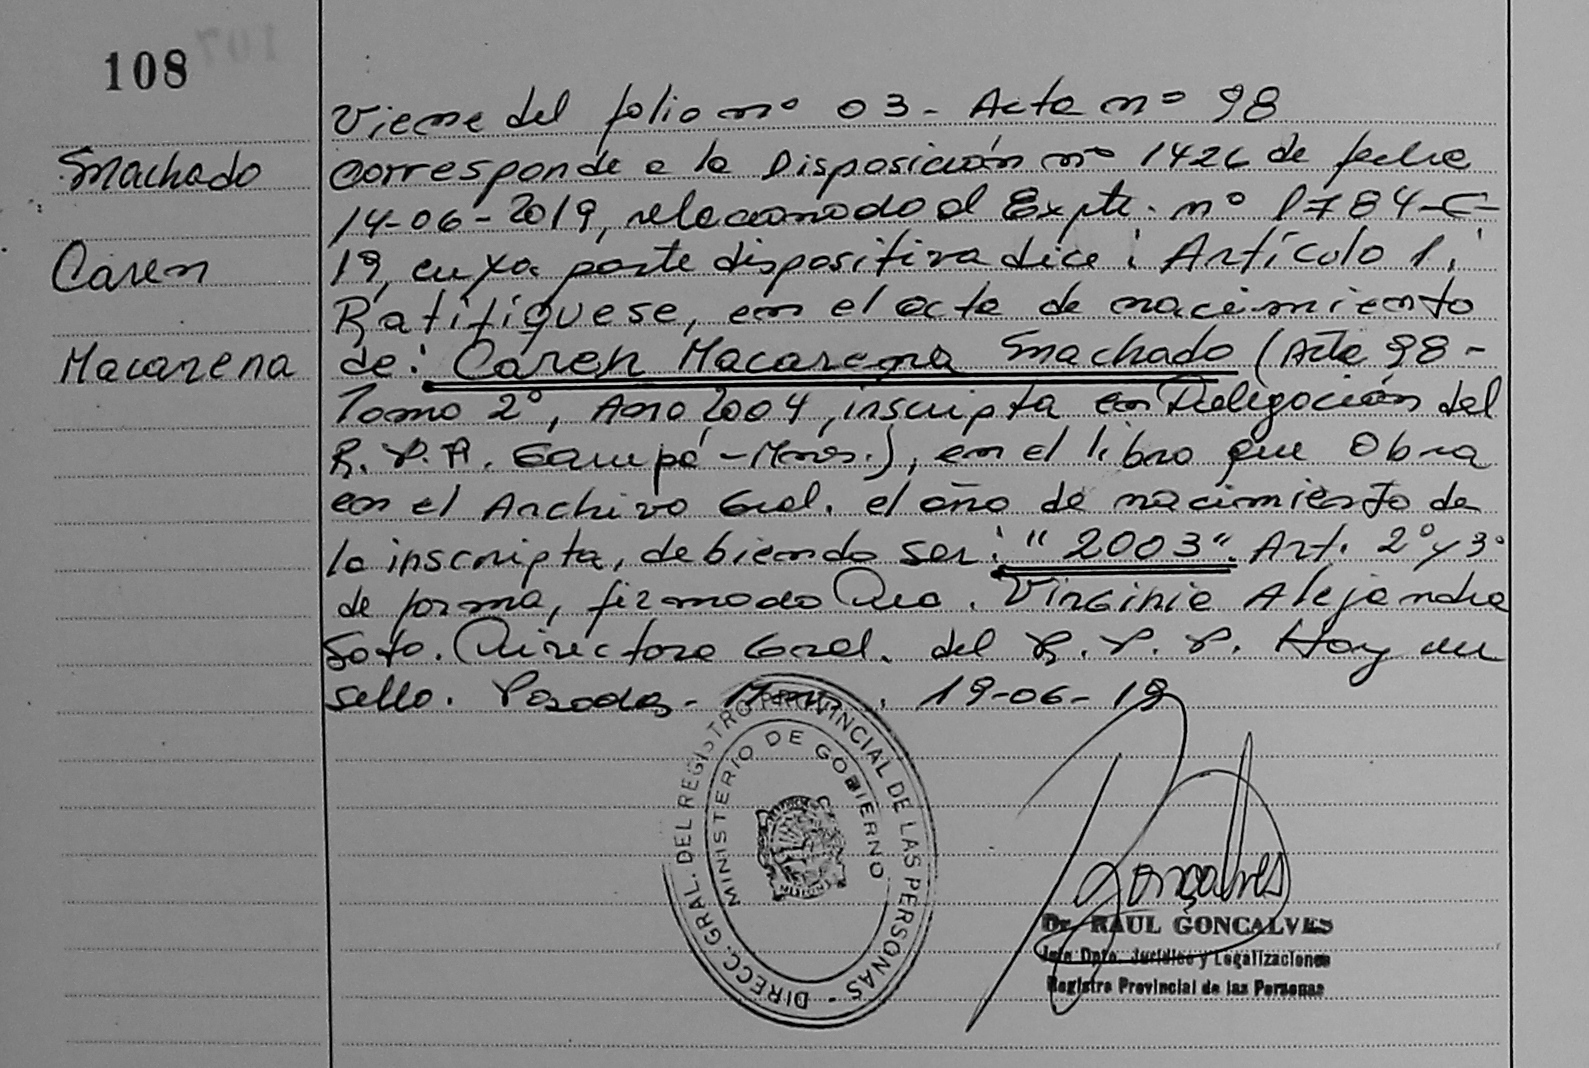 108
107
Viene del folio nº 03 - Acta nº 98
Machado
Corresponde a la Disposición nº 1426 de fecha
14-06-2019, relacionado al Expte. nº 1784-C-
Caren
19, cuya parte dispositiva dice: Artículo 1:
Ratifíquese, en el acta de nacimiento
Macarena
de: Caren Macarena Machado (Acta 98 -
Tomo 2º, Año 2004, inscripta en Delegación del
R.P.P. - Mnes.), en el libro que Obra
en el Archivo Gral. el año de nacimiento de
la inscripta, debiendo ser: "2003". Art. 2º y 3º
de forma, firmado Dra. Virginia Alejandra
Soto. Directora Gral. del R.P.P. Hay un
sello. Posadas - Mnes. 19-06-19
DIRECC. GRAL. DEL REGISTRO PROVINCIAL DE LAS PERSONAS -
MINISTERIO DE GOBIERNO
MISIONES
Gonçalves
Dr. RAUL GONCALVES
Jefe Dpto. Jurídico y Legalizaciones
Registro Provincial de las Personas